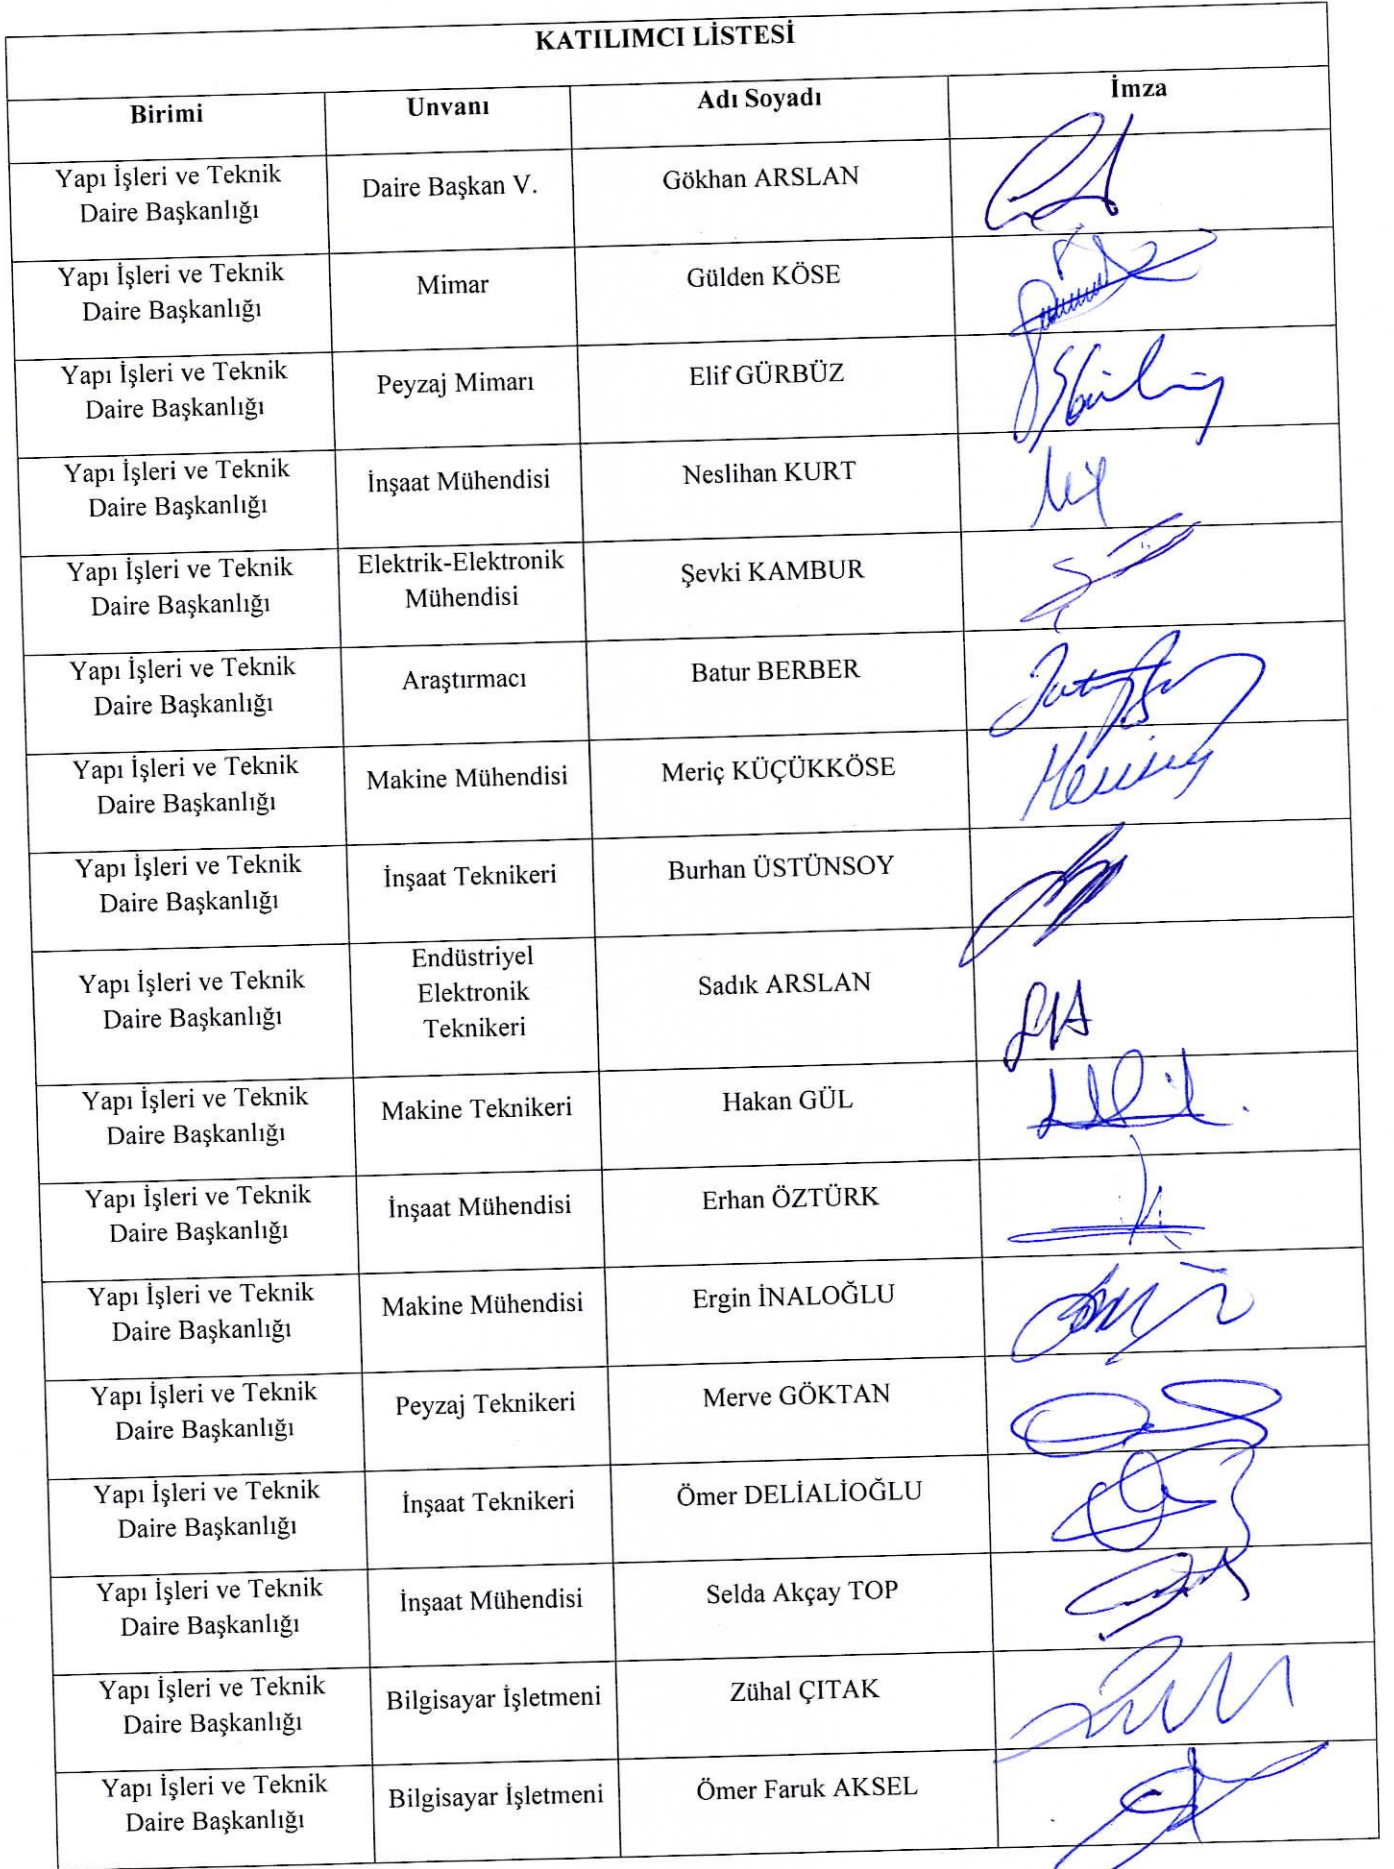 KATILIMCI LİSTESİ
Birimi Unvanı Adı Soyadı İmza
Yapı İşleri ve Teknik
Daire Başkanlığı
Daire Başkan V.
Gökhan ARSLAN
Yapı İşleri ve Teknik
Daire Başkanlığı
Mimar
Gülden KÖSE
Yapı İşleri ve Teknik
Daire Başkanlığı
Peyzaj Mimarı
Elif GÜRBÜZ
Yapı İşleri ve Teknik
Daire Başkanlığı
İnşaat Mühendisi
Neslihan KURT
Yapı İşleri ve Teknik
Daire Başkanlığı
Elektrik-Elektronik
Mühendisi
Şevki KAMBUR
Yapı İşleri ve Teknik
Daire Başkanlığı
Araştırmacı
Batur BERBER
Yapı İşleri ve Teknik
Daire Başkanlığı
Makine Mühendisi
Meriç KÜÇÜKKÖSE
Yapı İşleri ve Teknik
Daire Başkanlığı
İnşaat Teknikeri
Burhan ÜSTÜNSOY
Yapı İşleri ve Teknik
Daire Başkanlığı
Endüstriyel
Elektronik
Teknikeri
Sadık ARSLAN
Yapı İşleri ve Teknik
Daire Başkanlığı
Makine Teknikeri
Hakan GÜL
Yapı İşleri ve Teknik
Daire Başkanlığı
İnşaat Mühendisi
Erhan ÖZTÜRK
Yapı İşleri ve Teknik
Daire Başkanlığı
Makine Mühendisi
Ergin İNALOĞLU
Yapı İşleri ve Teknik
Daire Başkanlığı
Peyzaj Teknikeri
Merve GÖKTAN
Yapı İşleri ve Teknik
Daire Başkanlığı
İnşaat Teknikeri
Ömer DELİALİOĞLU
Yapı İşleri ve Teknik
Daire Başkanlığı
İnşaat Mühendisi
Selda Akçay TOP
Yapı İşleri ve Teknik
Daire Başkanlığı
Bilgisayar İşletmeni
Zühal ÇITAK
Yapı İşleri ve Teknik
Daire Başkanlığı
Bilgisayar İşletmeni
Ömer Faruk AKSEL